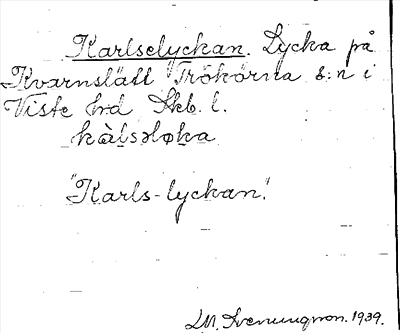 Karlselyckan. Lycka på
Kvarnslätt Trökörna s:n i
Viste hrd Skb. l.
kàlsəløka
"Karls-lyckan".
M. Sveningsson. 1939.